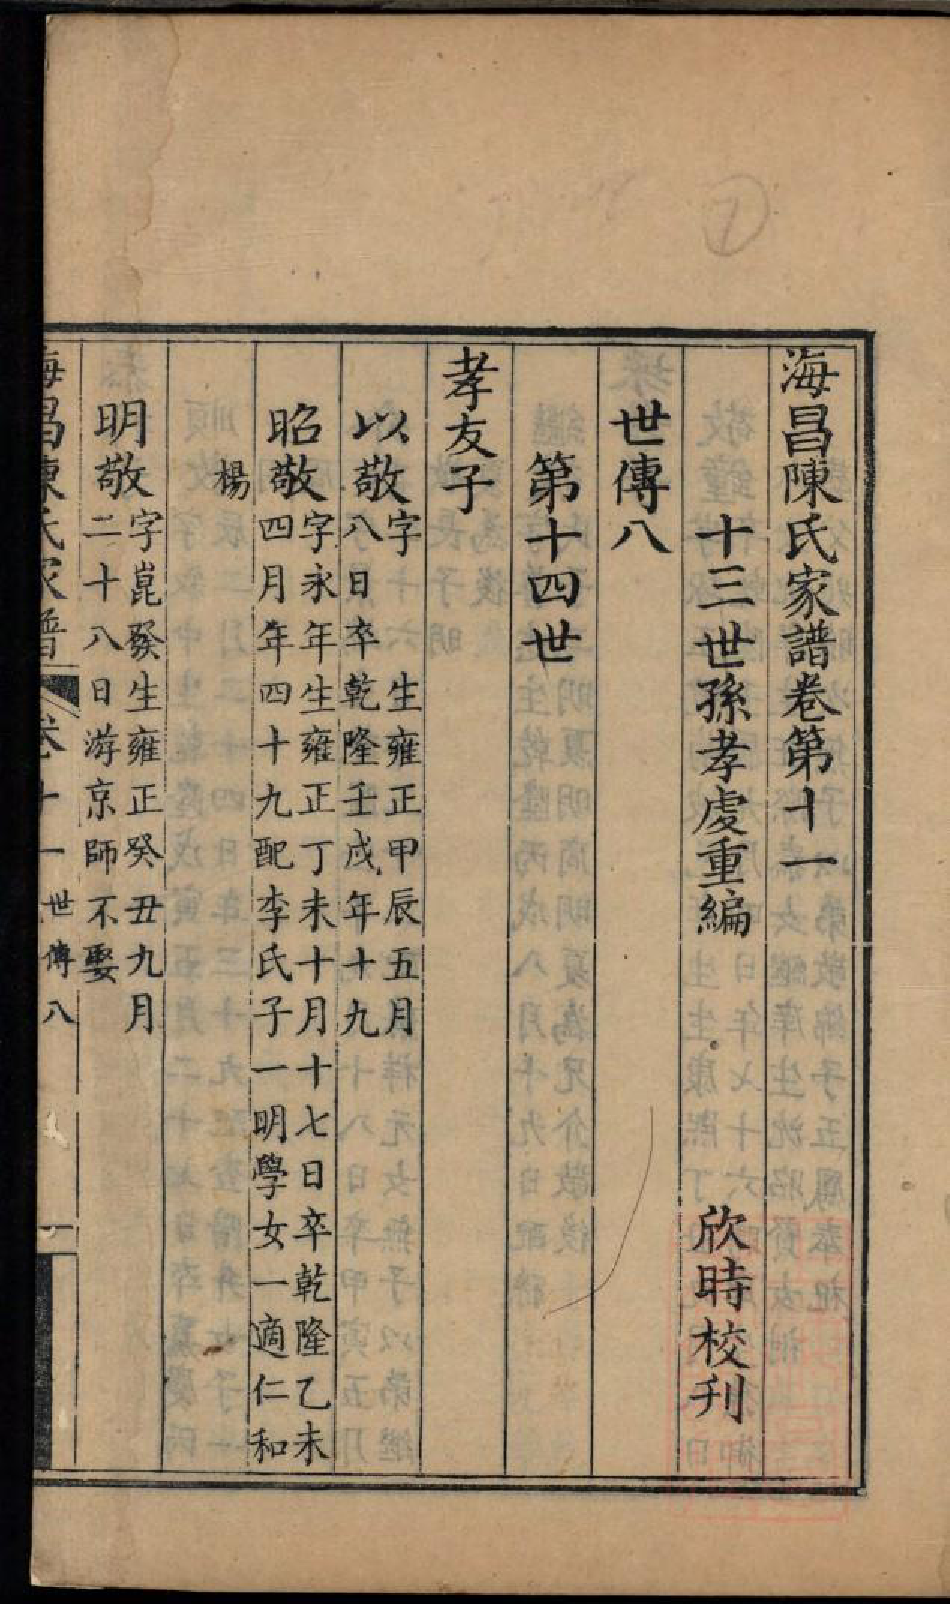 海昌陳氏家譜卷第十一
十三世孫孝虔重編　欣時校刋
世傳八
第十四世
孝友子
以敬字　生雍正甲辰五月
八日卒乾隆壬戌年十九
昭敬字永年生雍正丁未十月十七日卒乾隆乙未
四月年四十九配李氏子一明學女一適仁和
楊
明敬字崑發生雍正癸丑九月
二十八日游京師不娶
海昌陳氏家譜　卷十一　世傳八　一